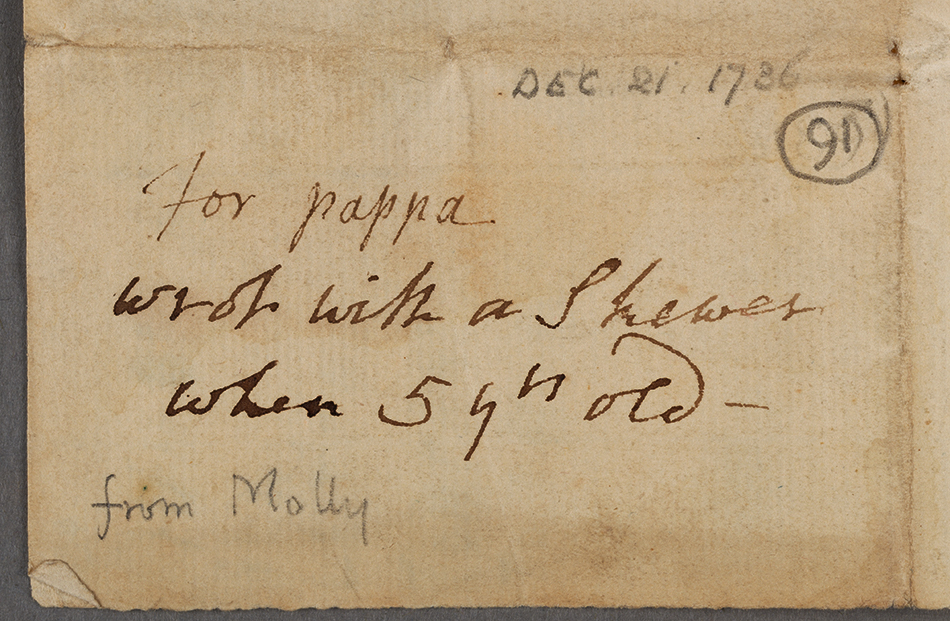 DEC. 21. 1736
91
For pappa
wrote with a Skewer
when 5 yrs old –
from Molly